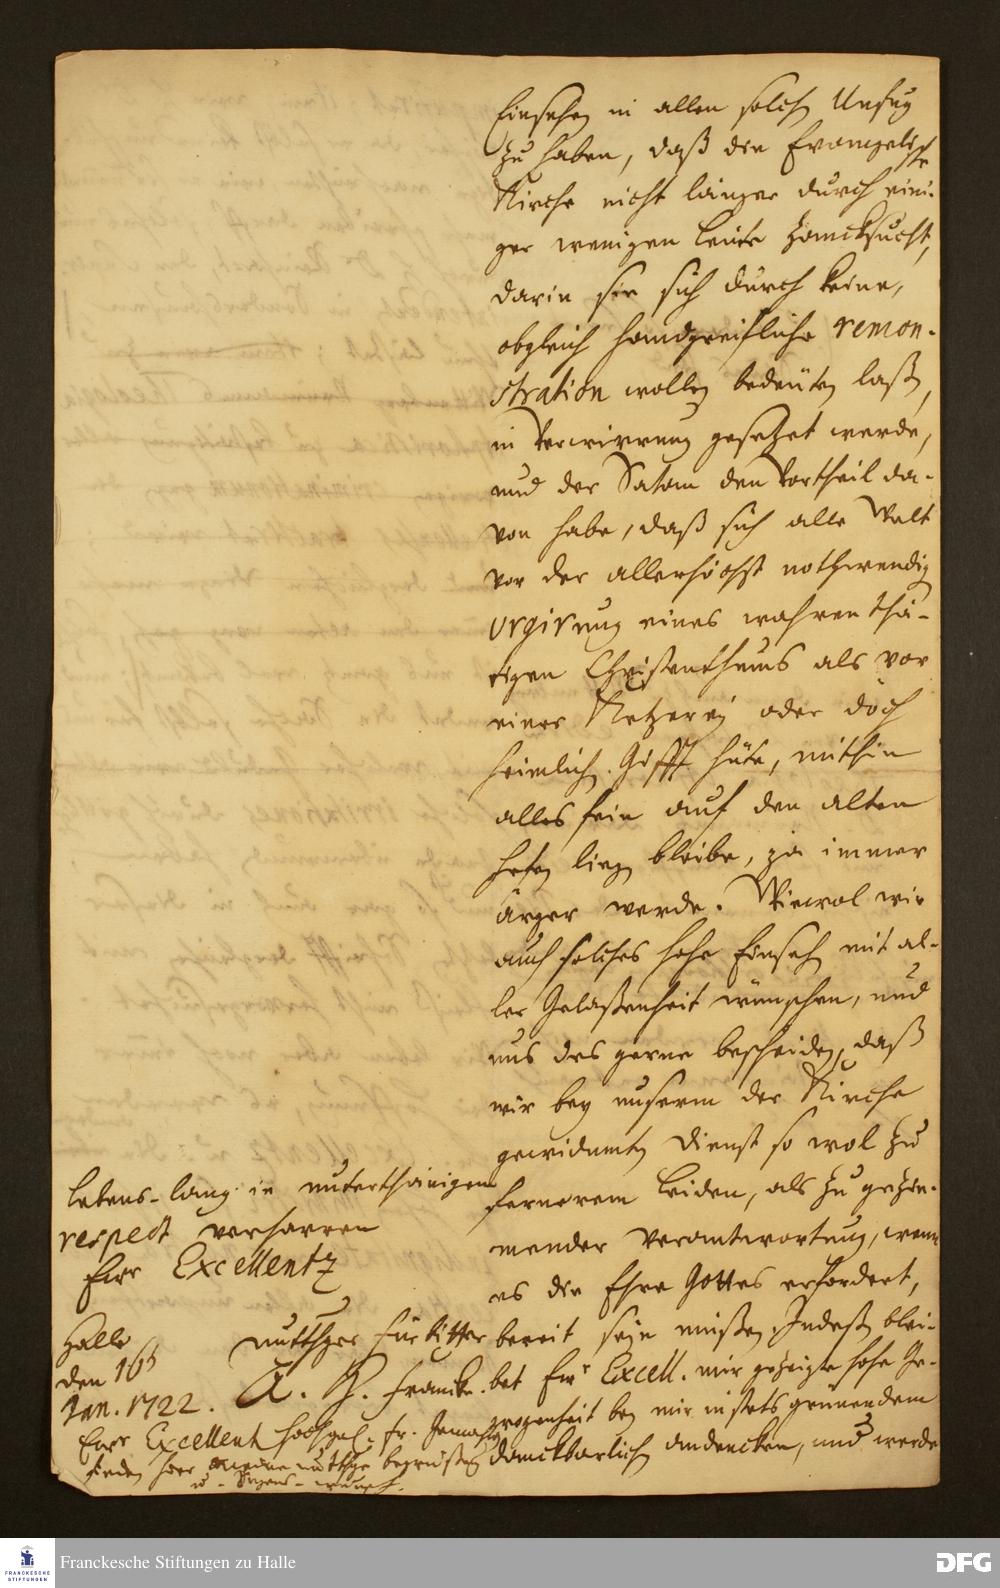 Einsehen in allen solch Unfug
zu haben, daß die Evangelische
Kirche nicht länger durch eini-
ger wenigen Leute Zancksucht,
darin sie sich durch keine,
obgleich handgreifliche remon-
stration wollen bedeuten laßen,
in Verwirrung gesetzet werde,
und der Satan den Vortheil da-
von habe, daß sich alle Welt
vor der allerhöchst nothwendig
urgirung eines wahren thä-
tigen Christenthums als vor
einer Ketzerey oder doch
heimlich Gifft hüte, mithin
alles fein auf den alten
hefen liegen bleibe, ja immer
ärger werde. Wiewol wir
auch solches hohe Einsehen mit al-
ler Gelaßenheit wünschen, und
uns des gerne bescheiden, daß
wir bey unserm der Kirche
gewidmeten Dienst so wol zu
fernerem Leiden, als zu gezie-
mender Verantwortung, wenn
es die Ehre Gottes erfordert,
bereit sein müßen. Indeß blei-
bet Ewr Excell. mir gezeigte hohe Ge-
wogenheit bey mir in stets grünendem
danckbarlich andencken, und werde
lebens-lang in unterthänigem
respect verharren
Ewr Excellentz
Halle
den 16
Jan. 1722.
unterthger Fürbitter
A. H. Francke.
Ewr Excellentz hochgel. Fr. Gemahlin
finden hier meine unterthge begrüßung
u. Segens-wunsch.
Franckesche Stiftungen zu Halle
FRANCKESCHE
STIFTUNGEN
DFG